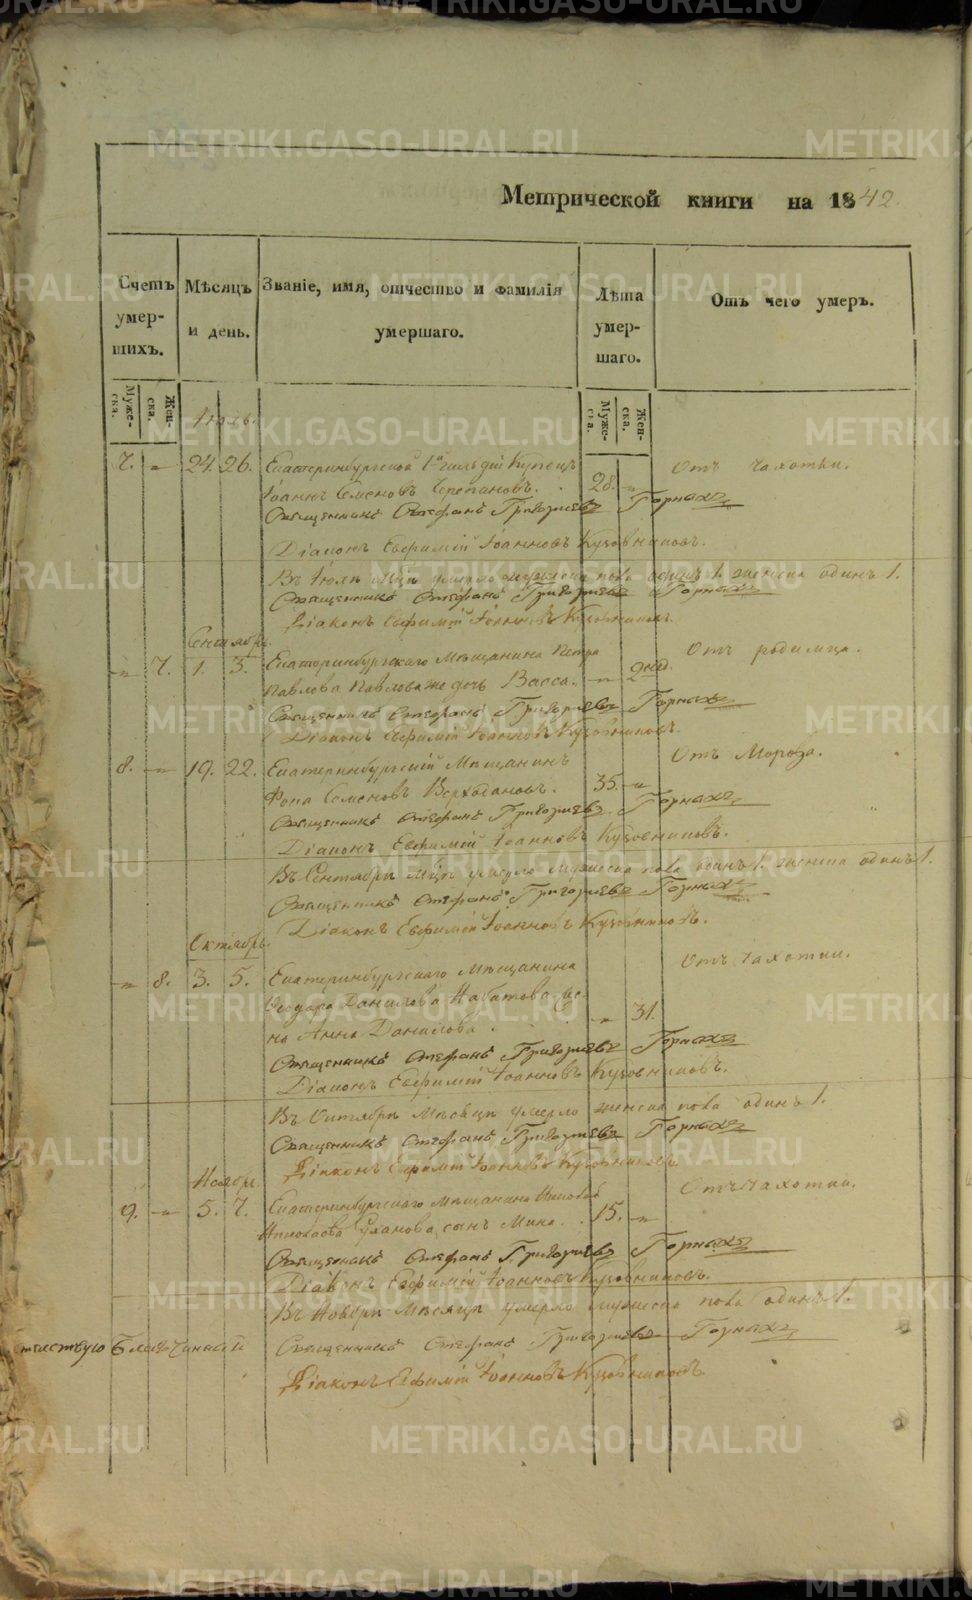 Метрической книги на 1842.
Счетъ умер-шихъ.
Мѣсяцъ и день.
Званіе, имя, отчество и фамилія умершаго.
Лѣта умер-шаго.
Отъ чего умеръ.
Муже-ска.
Жен-ска.
Муже-ска.
Жен-ска.
Іюль.
7. - 24. 26. Екатеринбургской 1й гильдіи Купецъ
Іоаннъ Семеновъ Черепановъ. 28. - Отъ чахотки.
Священникъ Стефанъ Григорьевъ Горныхъ
Діаконъ Евфимій Іоанновъ Кузовниковъ.
Въ Іюлѣ Мцѣ умерло мужеска пола одинъ 1. женска одинъ 1.
Священникъ Стефанъ Григорьевъ Горныхъ
Діаконъ Евфимій Іоанновъ Кузовниковъ.
Сентябрь.
- 7. 1. 3. Екатеринбургскаго Мѣщанина Петра
Павлова Павлова же дочь Васса. - 2 нед. Отъ родимца.
Священникъ Стефанъ Григорьевъ Горныхъ
Діаконъ Евфимій Іоанновъ Кузовниковъ.
8. - 19. 22. Екатеринбургскій Мѣщанинъ
Фока Семеновъ Верходановъ. 35. - Отъ Мороза.
Священникъ Стефанъ Григорьевъ Горныхъ
Діаконъ Евфимій Іоанновъ Кузовниковъ.
Въ Сентябрѣ Мцѣ умерло мужеска пола одинъ 1. женска одинъ 1.
Священникъ Стефанъ Григорьевъ Горныхъ
Діаконъ Евфимій Іоанновъ Кузовниковъ.
Октябрь.
- 8. 3. 5. Екатеринбургскаго Мѣщанина
Ѳеодора Данилова Набатова же-
на Анна Данилова. - 31. Отъ чахотки.
Священникъ Стефанъ Григорьевъ Горныхъ
Діаконъ Евфимій Іоанновъ Кузовниковъ.
Въ Октябрѣ Мѣсяцѣ умерло женска пола одинъ 1.
Священникъ Стефанъ Григорьевъ Горныхъ
Діаконъ Евфимій Іоанновъ Кузовниковъ
Ноябрь.
9. - 5. 7. Екатеринбургскаго Мѣщанина Николая
Николаева сынъ 15. - Отъ чахотки.
Священникъ Стефанъ Григорьевъ Горныхъ
Діаконъ Евфимій Іоанновъ Кузовниковъ.
Въ Ноябрѣ Мѣсяцѣ умерло мужеска пола одинъ 1.
Священникъ Стефанъ Григорьевъ Горныхъ
Діаконъ Евфимій Іоанновъ Кузовниковъ
METRIKI.GASO-URAL.RU